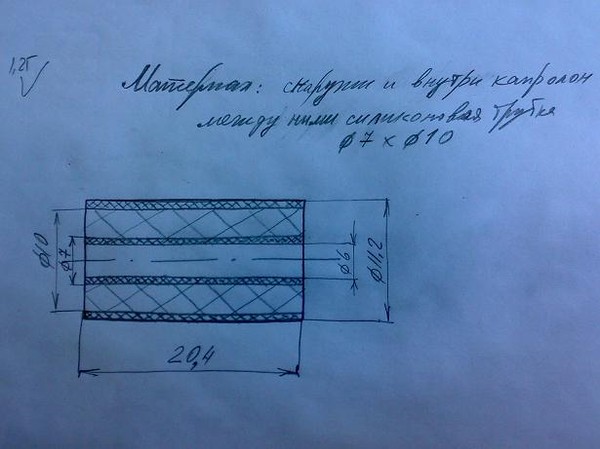 1,25
Материал: снаружи и внутри капролон
между ними силиконовая трубка
ϕ7 x ϕ10
ϕ10
ϕ7
ϕ6
ϕ11,2
20,4